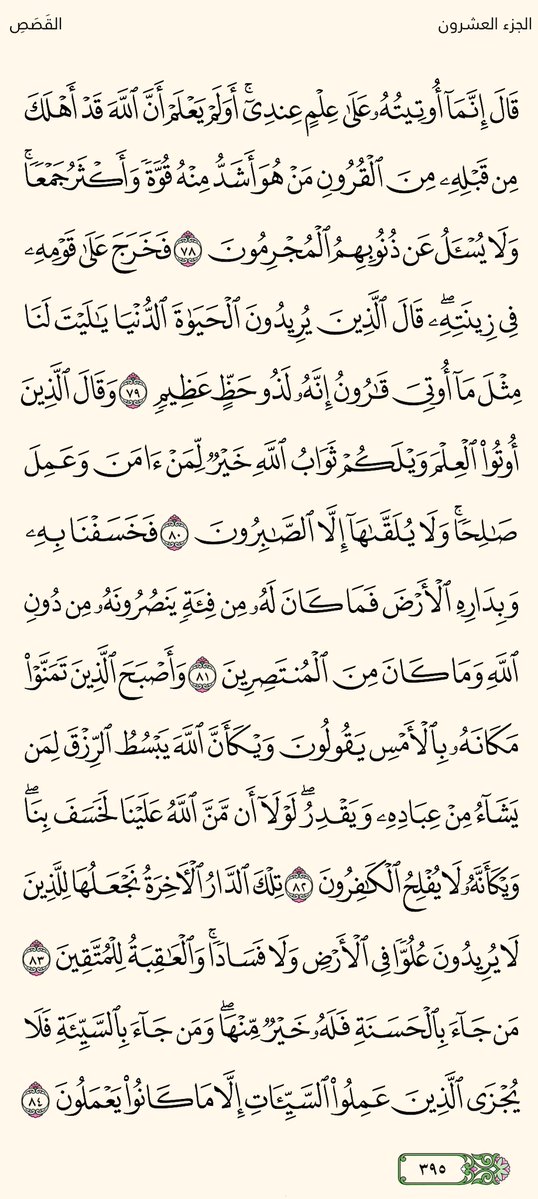 الجزء العشرون القَصَصِ
قَالَ إِنَّمَآ أُوتِيتُهُۥ عَلَىٰ عِلْمٍ عِندِىٓۚ أَوَلَمْ يَعْلَمْ أَنَّ ٱللَّهَ قَدْ أَهْلَكَ
مِن قَبْلِهِۦ مِنَ ٱلْقُرُونِ مَنْ هُوَ أَشَدُّ مِنْهُ قُوَّةً وَأَكْثَرُ جَمْعًاۚ
وَلَا يُسْـَٔلُ عَن ذُنُوبِهِمُ ٱلْمُجْرِمُونَ ٧٨ فَخَرَجَ عَلَىٰ قَوْمِهِۦ
فِى زِينَتِهِۦۖ قَالَ ٱلَّذِينَ يُرِيدُونَ ٱلْحَيَوٰةَ ٱلدُّنْيَا يَـٰلَيْتَ لَنَا
مِثْلَ مَآ أُوتِىَ قَـٰرُونُ إِنَّهُۥ لَذُو حَظٍّ عَظِيمٍ ٧٩ وَقَالَ ٱلَّذِينَ
أُوتُوا۟ ٱلْعِلْمَ وَيْلَكُمْ ثَوَابُ ٱللَّهِ خَيْرٌ لِّمَنْ ءَامَنَ وَعَمِلَ
صَـٰلِحًاۚ وَلَا يُلَقَّىٰهَآ إِلَّا ٱلصَّـٰبِرُونَ ٨٠ فَخَسَفْنَا بِهِۦ
وَبِدَارِهِ ٱلْأَرْضَ فَمَا كَانَ لَهُۥ مِن فِئَةٍ يَنصُرُونَهُۥ مِن دُونِ
ٱللَّهِ وَمَا كَانَ مِنَ ٱلْمُنتَصِرِينَ ٨١ وَأَصْبَحَ ٱلَّذِينَ تَمَنَّوْا۟
مَكَانَهُۥ بِٱلْأَمْسِ يَقُولُونَ وَيْكَأَنَّ ٱللَّهَ يَبْسُطُ ٱلرِّزْقَ لِمَن
يَشَآءُ مِنْ عِبَادِهِۦ وَيَقْدِرُۖ لَوْلَآ أَن مَّنَّ ٱللَّهُ عَلَيْنَا لَخَسَفَ بِنَاۖ
وَيْكَأَنَّهُۥ لَا يُفْلِحُ ٱلْكَـٰفِرُونَ ٨٢ تِلْكَ ٱلدَّارُ ٱلْـَٔاخِرَةُ نَجْعَلُهَا لِلَّذِينَ
لَا يُرِيدُونَ عُلُوًّا فِى ٱلْأَرْضِ وَلَا فَسَادًاۚ وَٱلْعَـٰقِبَةُ لِلْمُتَّقِينَ ٨٣
مَن جَآءَ بِٱلْحَسَنَةِ فَلَهُۥ خَيْرٌ مِّنْهَاۖ وَمَن جَآءَ بِٱلسَّيِّئَةِ فَلَا
يُجْزَى ٱلَّذِينَ عَمِلُوا۟ ٱلسَّيِّـَٔاتِ إِلَّا مَا كَانُوا۟ يَعْمَلُونَ ٨٤
٣٩٥